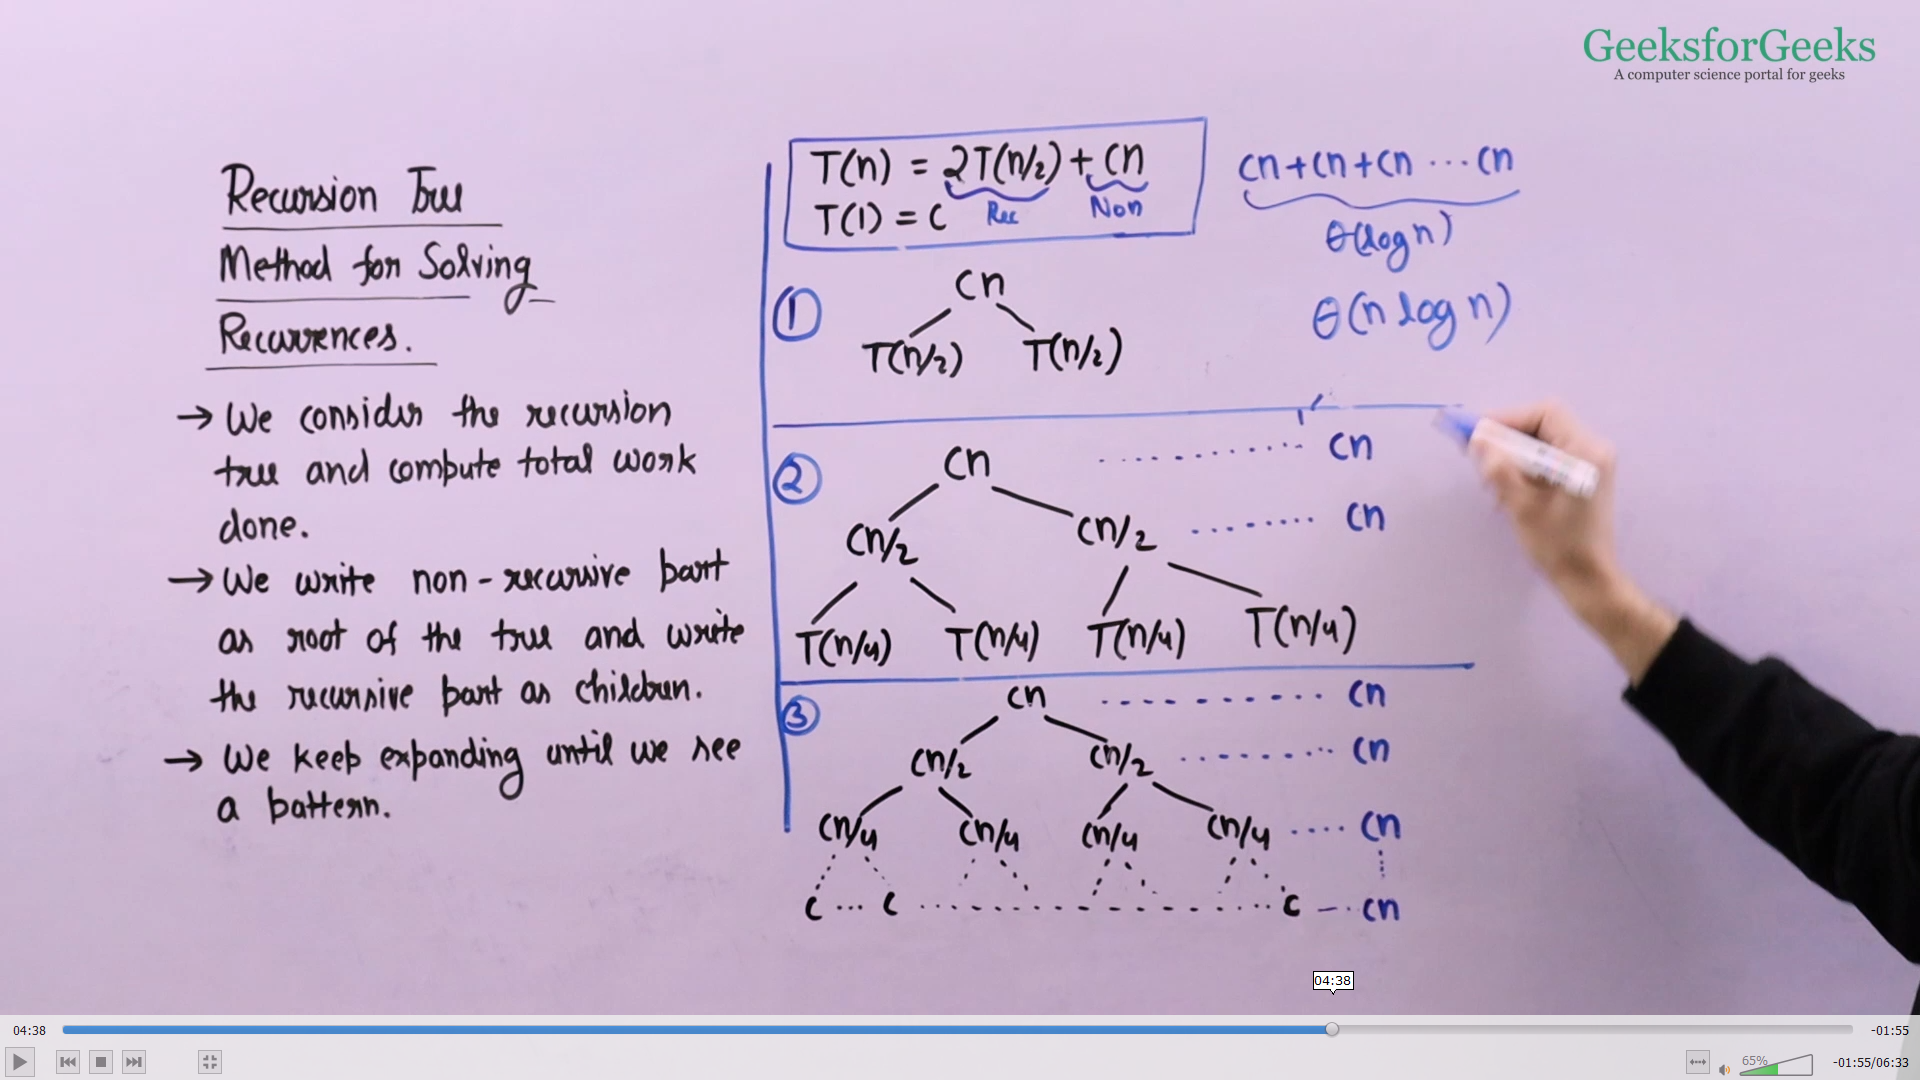 GeeksforGeeks
A computer science portal for geeks
Recursion Tree
Method for Solving
Recurrences.
→ We consider the recursion
tree and compute total work
done.
→ We write non-recursive part
as root of the tree and write
the recursive part as children.
→ We keep expanding until we see
a pattern.
T(n) = 2T(n/2) + cn
Rec Non
T(1) = C
cn + cn + cn ... cn
θ(log n)
θ(n log n)
1
cn
T(n/2) T(n/2)
2
cn .......... cn
cn/2 cn/2 ........ cn
T(n/4) T(n/4) T(n/4) T(n/4)
3
cn .......... cn
cn/2 cn/2 ........ cn
cn/4 cn/4 cn/4 cn/4 .... cn
c ... c .......... c ... cn
04:38
04:38 -01:55
65% -01:55/06:33